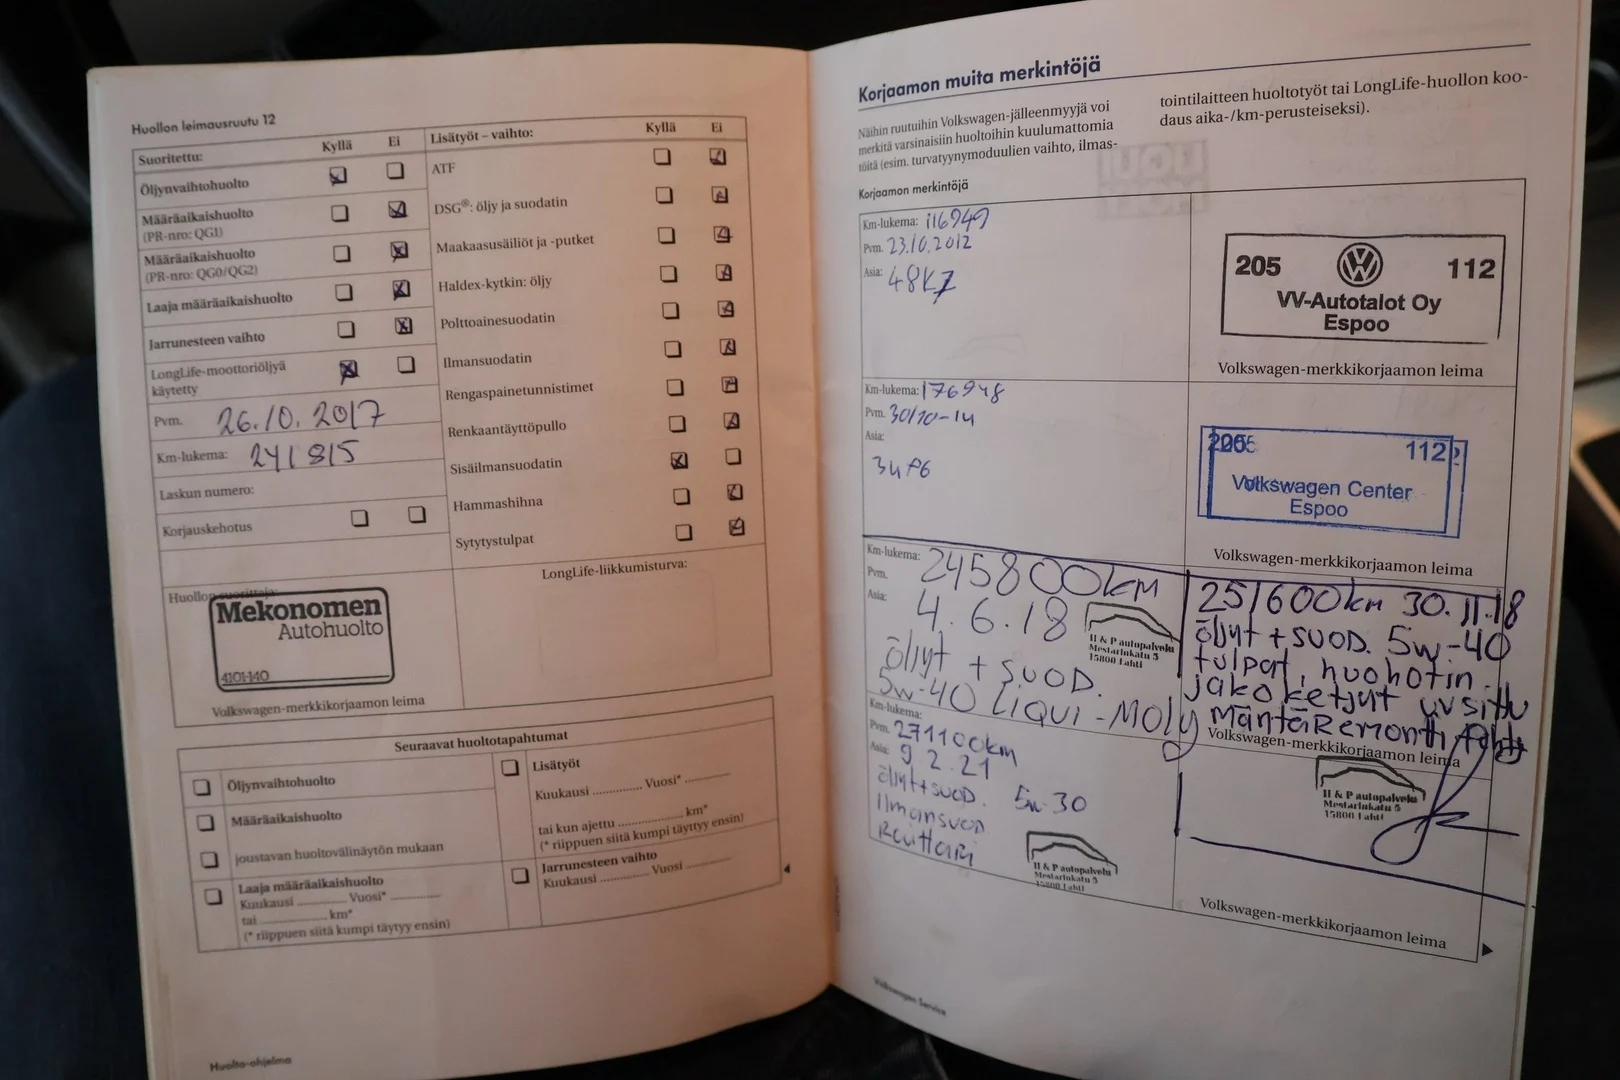 Huollon leimausruutu 12
Suoritettu: Kyllä Ei
Öljynvaihtohuolto
Määräaikaishuolto
(PR-nro: QG1)
Määräaikaishuolto
(PR-nro: QG0/QG2)
Laaja määräaikaishuolto
Jarrunesteen vaihto
LongLife-moottoriöljyä
käytetty
Pvm. 26.10.2017
Km-lukema: 241815
Laskun numero:
Korjauskehotus
Lisätyöt – vaihto: Kyllä Ei
ATF
DSG®: öljy ja suodatin
Maakaasusäiliöt ja -putket
Haldex-kytkin: öljy
Polttoainesuodatin
Ilmansuodatin
Rengaspainetunnistimet
Renkaantäyttöpullo
Sisäilmansuodatin
Hammashihna
Sytytystulpat
Huollon suorittaja:
Mekonomen
Autohuolto
4101-140
Volkswagen-merkkikorjaamon leima
LongLife-liikkumisturva:
Seuraavat huoltotapahtumat
Öljynvaihtohuolto
Määräaikaishuolto
joustavan huoltovälinäytön mukaan
Laaja määräaikaishuolto
Kuukausi ............ Vuosi* ............
tai ................ km*
(* riippuen siitä kumpi täytyy ensin)
Lisätyöt
Kuukausi ............ Vuosi* ............
tai kun ajettu ................ km*
(* riippuen siitä kumpi täytyy ensin)
Jarrunesteen vaihto
Kuukausi ............ Vuosi ............
Huolto-ohjelma
Korjaamon muita merkintöjä
Näihin ruutuihin Volkswagen-jälleenmyyjä voi
merkitä varsinaisiin huoltoihin kuulumattomia
töitä (esim. turvatyynymoduulien vaihto, ilmas-
tointilaitteen huoltotyöt tai LongLife-huollon koo-
daus aika-/km-perusteiseksi).
Korjaamon merkintöjä
Km-lukema: 116949
Pvm. 23.10.2012
Asia: 48K7
205 112
VV-Autotalot Oy
Espoo
Volkswagen-merkkikorjaamon leima
Km-lukema: 176948
Pvm. 30/10-14
Asia:
34F6
205 112
Volkswagen Center
Espoo
Volkswagen-merkkikorjaamon leima
Km-lukema: 245800km
Pvm. 4.6.18
Asia:
öljyt + suod.
5w-40 Liqui-Moly
H & P autopalvelu
Mestarinkatu 5
15800 Lahti
251600km 30.11.18
öljyt + suod. 5w-40
tulpat, huohotin
jakoketjut uusittu
Mäntäremontti tehty
Volkswagen-merkkikorjaamon leima
H & P autopalvelu
Mestarinkatu 5
15800 Lahti
Km-lukema:
Pvm. 271100km
Asia: 9.2.21
öljyt + suod. 5w-30
Ilmansuod
Raittari
H & P autopalvelu
Mestarinkatu 5
15800 Lahti
Volkswagen-merkkikorjaamon leima
Volkswagen Service